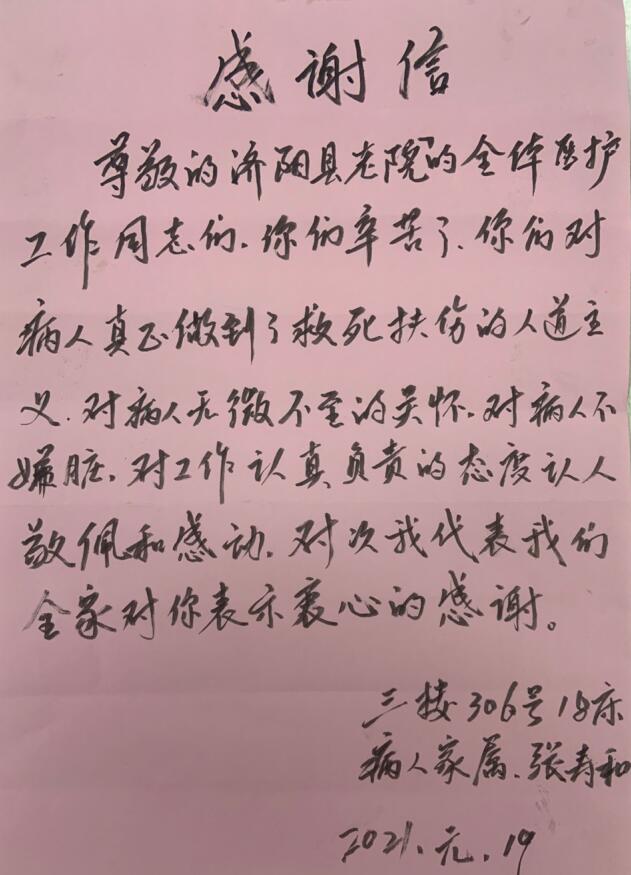 感谢信
尊敬的济阳县老院的全体医护
工作同志们.你们辛苦了.你们对
病人真正做到了救死扶伤的人道主
义.对病人无微不至的关怀.对病人不
嫌脏.对工作认真负责的态度认人
敬佩和感动.对次我代表我们
全家对你表示衷心的感谢。
三楼306号18床
病人家属.张寿和
2021.元.19